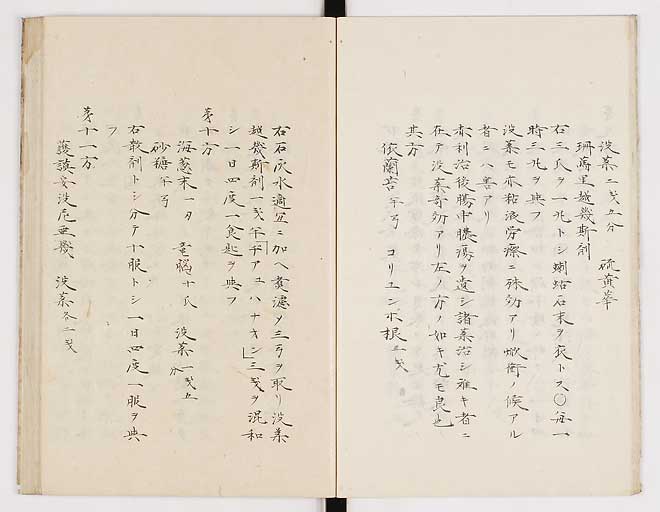 没薬二戔五分 硫黄華
珊篤里越幾斯剤
右三瓦ヲ一丸トシ蝲蛄石末ヲ衣トス〇毎一
時三丸ヲ與フ
没薬モ亦粘液労瘵ニ殊効アリ焮衝ノ候アル
者ニハ害アリ
赤利治後腸中膿瘍ヲ遺シ諸薬治シ難キ者ニ
在テ没薬奇効アリ左ノ方ノ如キ尤モ良也
其方
依蘭苔半弓 コリュンボ根三戔
右石灰水適宜ニ加ヘ煑濾メ三弓ヲ取リ没薬
越幾斯剤一戔半 アユハナキシ三戔ヲ混和
シ一日四度一食匙ヲ與フ
第十方
海葱末一刄 竜脳十瓦 没薬一戔五分
砂糖半弓
右散剤トシ分テ十服トシ一日四度一服ヲ與
フ
第十一方
護謨安没尼亜幾 没薬各二戔